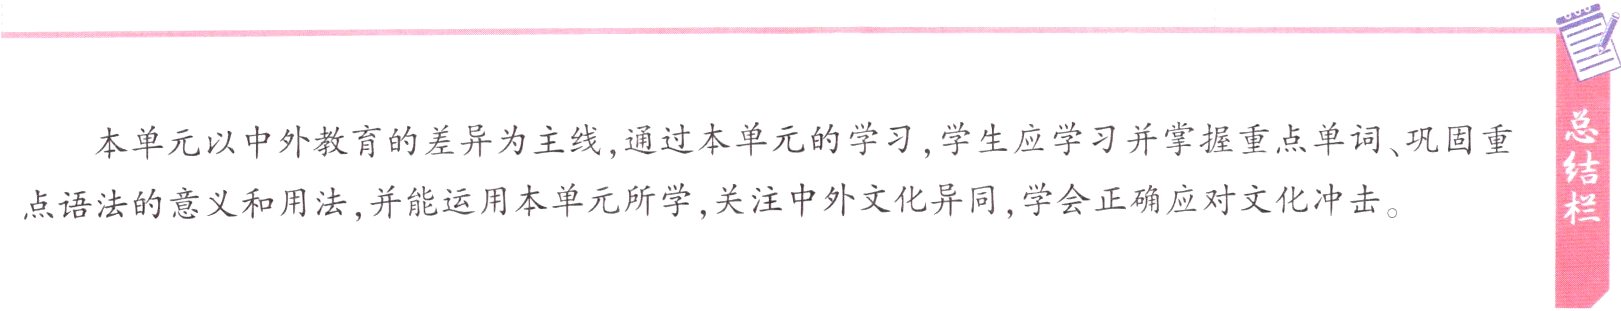 本单元以中外教育的差异为主线,通过本单元的学习,学生应学习并掌握重点单词、巩固重
点语法的意义和用法,并能运用本单元所学,关注中外文化异同,学会正确应对文化冲击。
总结栏